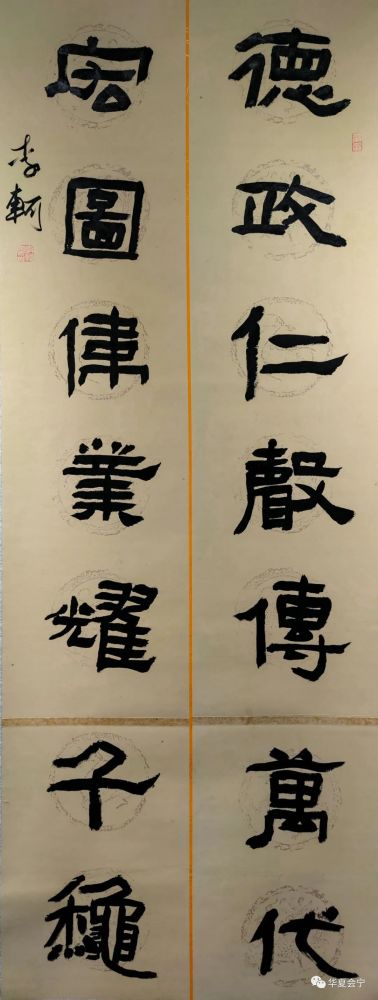 德政仁聲傳萬代
宏圖偉業耀千龝
李軻
华夏会宁